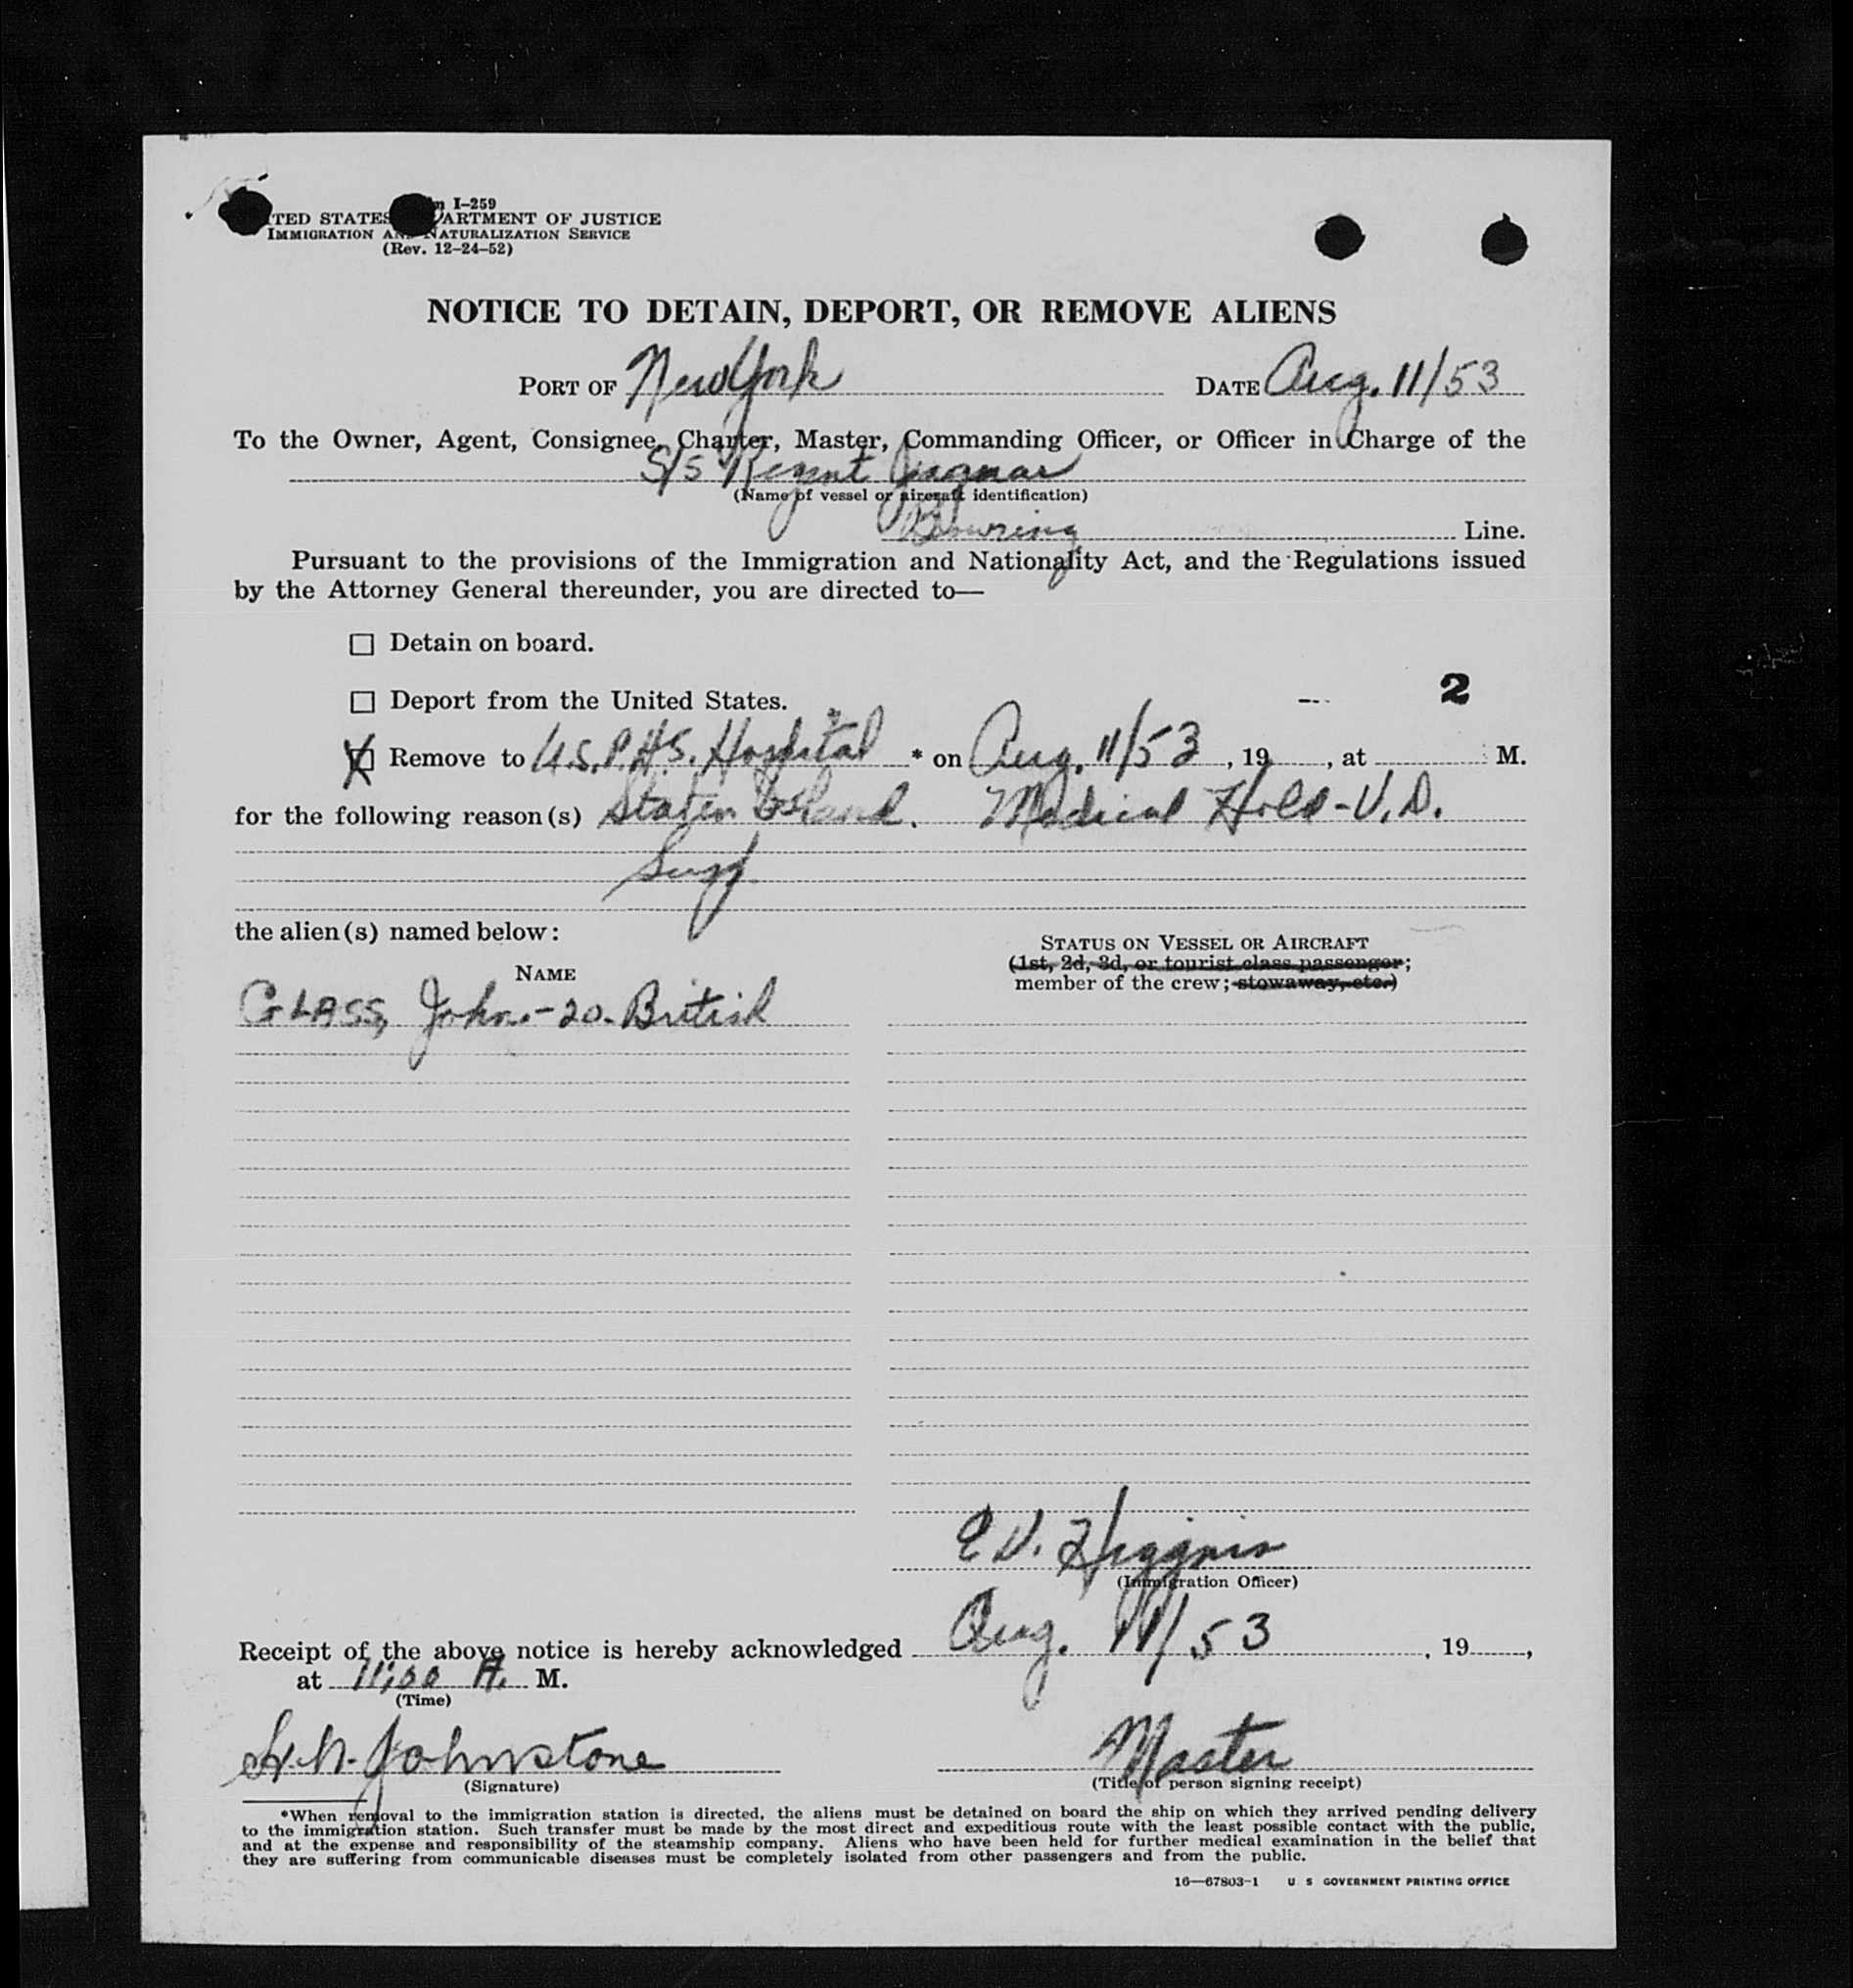 m I-259
TED STATES ARTMENT OF JUSTICE
IMMIGRATION AND NATURALIZATION SERVICE
(Rev. 12-24-52)
NOTICE TO DETAIN, DEPORT, OR REMOVE ALIENS
PORT OF New York DATE Aug. 11/53
To the Owner, Agent, Consignee, Charter, Master, Commanding Officer, or Officer in Charge of the
S/S Regent
(Name of vessel or aircraft identification)
Bowring Line.
Pursuant to the provisions of the Immigration and Nationality Act, and the Regulations issued
by the Attorney General thereunder, you are directed to—
☐ Detain on board.
☐ Deport from the United States.
2
☒ Remove to U.S.P.H.S. Hospital * on Aug. 11/53, 19, at M.
for the following reason(s) Staten Island. Medical Hold-V.D.
the alien(s) named below:
STATUS ON VESSEL OR AIRCRAFT
NAME
(1st, 2d, 3d, or tourist class passenger;
member of the crew; stowaway, etc.)
GLASS, John.-20. British
E V. Higgins
(Immigration Officer)
Receipt of the above notice is hereby acknowledged Aug. 11/53, 19,
at 11:00 A. M.
(Time)
H. N. Johnstone Master
(Signature) (Title of person signing receipt)
*When removal to the immigration station is directed, the aliens must be detained on board the ship on which they arrived pending delivery
to the immigration station. Such transfer must be made by the most direct and expeditious route with the least possible contact with the public,
and at the expense and responsibility of the steamship company. Aliens who have been held for further medical examination in the belief that
they are suffering from communicable diseases must be completely isolated from other passengers and from the public.
16—67803-1 U S GOVERNMENT PRINTING OFFICE